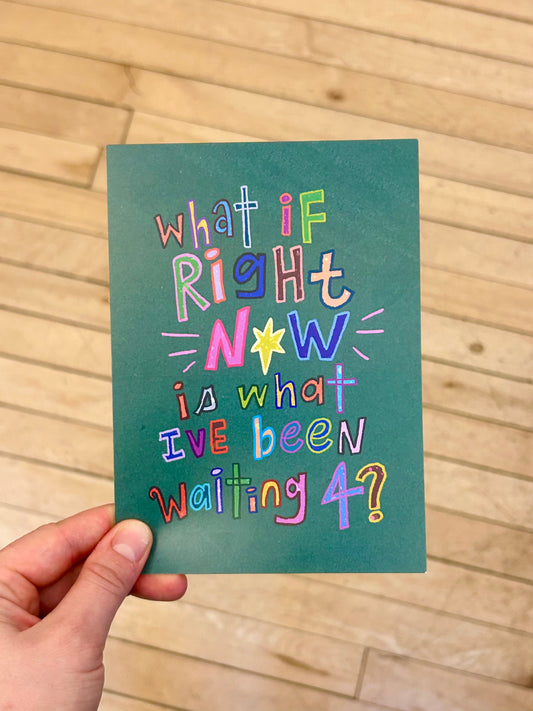 what iF
Right
NOW
is what
I'VE been
waiting 4?